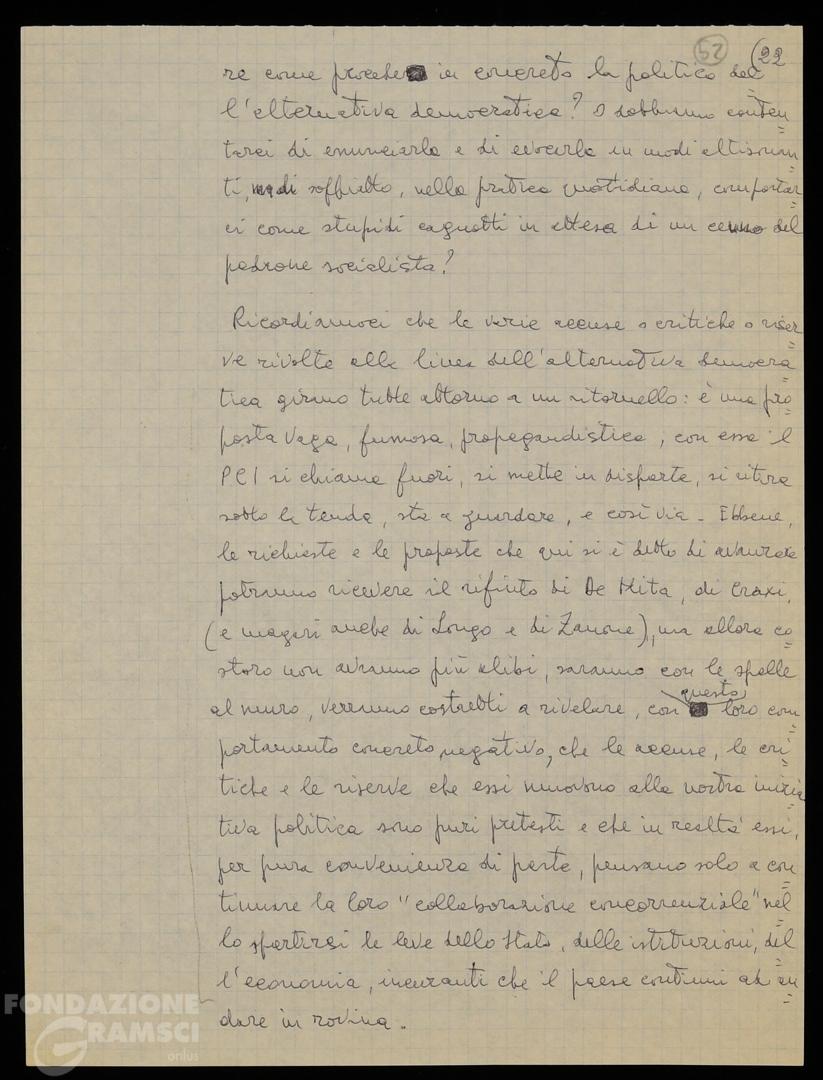 52 (22
re come procede in concreto la politica del
l'alternativa democratica? O dobbiamo conten
tarci di enunciarla e di evocarla in modi altisonan
ti, di soffiatto, nella pratica quotidiana, comportar
ci come stupidi cagnotti in attesa di un cenno del
padrone socialista?
Ricordiamoci che le varie accuse o critiche o riser
ve rivolte alla linea dell'alternativa democra
tica girano tutte attorno a un ritornello: è una pro
posta vaga, fumosa, propagandistica, con essa il
PCI si chiama fuori, si mette in disparte, si ritira
sotto la tenda, sta a guardare, e così via - Ebbene,
le richieste e le proposte che qui si è detto di avanzare
potranno ricevere il rifiuto di De Mita, di Craxi,
(e magari anche di Longo e di Zanone), ma allora co
storo non avranno più alibi, saranno con le spalle
al muro, verranno costretti a rivelare, con questo loro com
portamento concreto negativo, che le accuse, le cri
tiche e le riserve che essi muovono alla nostra inizia
tiva politica sono puri pretesti e che in realtà essi,
per pura convenienza di parte, pensano solo a con
tinuare la loro "collaborazione concorrenziale" nel
lo spartirsi le leve dello Stato, delle istituzioni, del
l'economia, incuranti che il paese continui ad an
dare in rovina.
FONDAZIONE
GRAMSCI
onlus